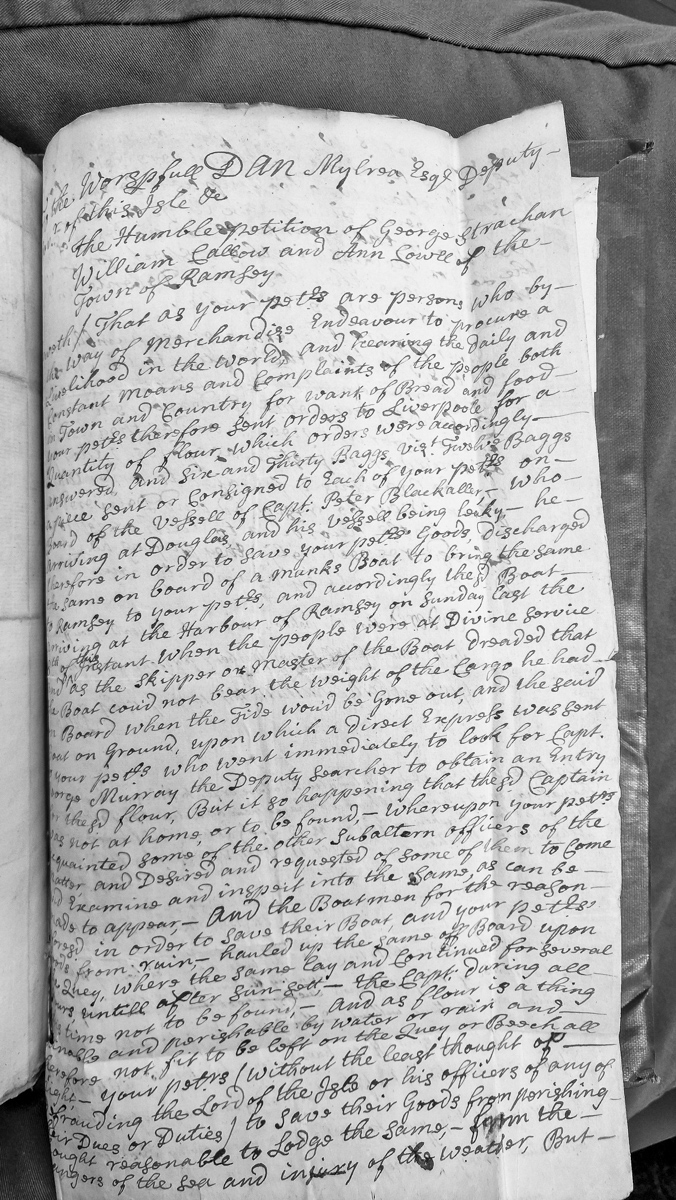 the Worspfull DAN Mylrea Esqr Deputy
of this Isle &c
the Humble petition of George Strachan
William Callow and Ann Cowle of the
Town of Ramsey
That as your petrs are persons who by
way of Merchandise Endeavour to procure a
Livelihood in the World, and hearing the daily and
Constant moans and Complaints of the people both
in Town and Country for want of Bread and food
your petrs therefore sent orders to Liverpoole for a
Quantity of flour, which orders were accordingly
answered, and six and Thirty Baggs, vizt Twelve Baggs
apiece sent or Consigned to Each of your petrs on
board of the Vessell of Capt. Peter Blackaller, who
arriving at Douglas, and his vessell being leaky he
therefore in order to save your petrs Goods, discharged
the same on board of a manks Boat to bring the same
to Ramsey to your petrs, and accordingly the sd Boat
arriving at the Harbour of Ramsey on sunday last the
of this Instant when the people were at Divine service
and as the skipper or Master of the Boat dreaded that
the Boat cou'd not bear the weight of the Cargo he had
on Board when the Tide wou'd be Gone out, and the said
Boat on Ground, upon which a direct Express was sent
to your petrs who went immediately to look for Capt.
George Murray the Deputy searcher to obtain an Entry
for the sd flour, But it so happening that the sd Captain
was not at home, or to be found, whereupon your petrs
acquainted some of the other subaltern officers of the
matter and Desired and requested of some of them to Come
and Examine and inspect into the same, as can be
made to appear, And the Boatmen for the reason
aforesd in order to save their Boat, and your petrs
from ruin, hauled up the same on Board upon
the Quey, where the same lay and Continued for several
hours untill after sun-sett, the Capt. during all
time not to be found, And as flour is a thing
and perishable by water or rain and
therefore not fit to be left on the Quey or Beech all
night, your petrs (without the least thought of
Defrauding the Lord of the Isle or his officers of any of
their Dues or Duties) to save their Goods from perishing
thought reasonable to Lodge the same, from the
dangers of the sea and injury of the weather, But